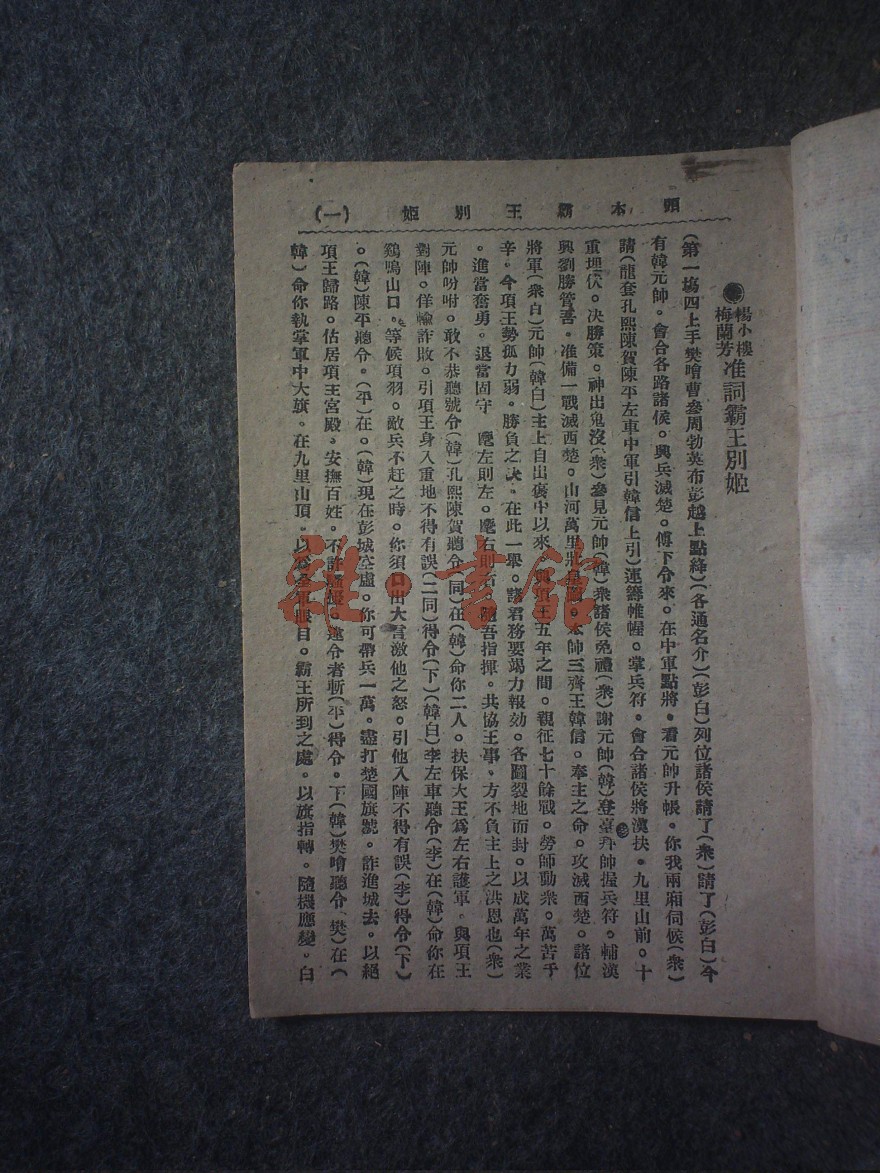 頭本霸王別姬 (一)
楊小樓
梅蘭芳
准詞霸王別姬
(第一塲四上手樊噲曹參周勃英布彭越上點絳)(各通名介)(彭白)列位諸侯請了(衆)請了(彭白)今
有韓元帥。會合各路諸侯。興兵滅楚。傅下令來。在中軍點將。看元帥升帳。你我兩廂伺候(衆)
請(龍套孔熙陳賀陳平左車中軍引韓信上引)運籌帷幄。掌兵符。會合諸侯將漢扶。九里山前。十
重埋伏。決勝策。神出鬼沒(衆)參見元帥(韓)衆諸侯免禮(衆)謝元帥(韓)登臺拜帥握兵符。輔漢
興劉勝管吾。准備一戰滅西楚。山河萬里將 圖。本帥三齊王韓信。奉主之命。攻滅西楚。諸位
將軍(衆白)元帥(韓白)主上自出褒中以來。與項王五年之間。親征七十餘戰。勞師動衆。萬苦千
辛。今項王勢孤力弱。勝負之决。在此一舉。諸君務要竭力報効。各圖裂地而封。以成萬年之業
。進當奮勇。退當固守 麾左則左。麾右則右。隨吾指揮。共協王事。方不負主上之洪恩也(衆)
元帥吩咐。敢不恭聽號令(韓)孔熙陳賀聽令(同)在(韓)命你二人。扶保大王爲左右護軍。與項王
對陣。佯輸詐敗。引項王身入重地不得有誤(二同)得令(下)(韓白)李左車聽令(李)在(韓)命你在
鷄鳴山口。等候項羽。敵兵不赶之時。你須口出大言激他之怒。引他入陣不得有誤(李)得令(下)
。(韓)陳平聽令。(平)在。(韓)現在彭城空虛。你可帶兵一萬。盡打楚國旗號。詐進城去。以絕
項王歸路。佔居項王宮殿。安撫百姓。不許騷擾。違令者斬(平)得令。下(韓)樊噲聽令(樊)在(
韓)命你執掌軍中大旗。在九里山頂。以爲全軍眼目。霸王所到之處。以旗指轉。隨機應變。白
雜·書館